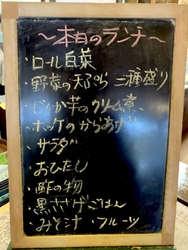 ～本日のランチ～
・ロール白菜
・野菜の天ぷら 二種盛り
・じゃが芋のクリーム煮
・ホッケのからあげ
・サラダ
・おひたし
・酢の物
・黒ささげごはん
・みそ汁 ・フルーツ